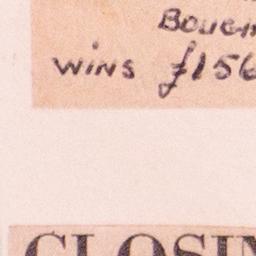 Bough
wins £156
CLOSIN